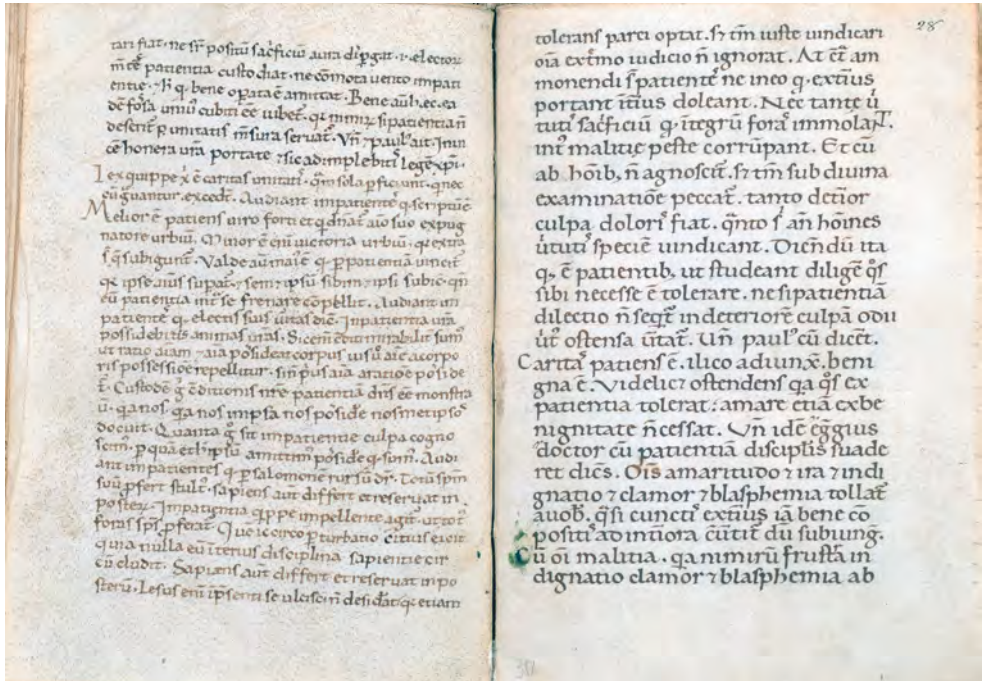 tari fiat. ne sr̄ positū sac̓ficiū aura dip̱gat. ⁊. electorū
m̄tē patientia custodiat. ne cōmota uento impati
entie. ⁊ h̄ q. bene opata ē amittat. Bene aūt h,ec. ea
dē fossa uniꝰ cubiti eē iubet̓. qꝛ nimiꝝ si patientia n̄
deserit̓ ꝑ unitatis m̄sura seruat̓. Vn̄ ⁊ paulꝰ ait. Inui
cē honera ur̄a portate ⁊ sic adimplebitꝭ legē xp̄i.
Lex quippe x̄ ē caritas unitatꝭ. qm̄ sola ꝑficiunt. q nec
cū g̓uantur. excedt̄. Audiant impatientꝭ q. scriptū ē
Melior ē patiens uiro forti et q dn̄at̓ aīo suo expug
natore urbiū. Minor ē eni uictoria urbiū. qꝛ extra
s̄ q̄ subigunt̓. Valde aū maiꝰ ē q. ꝑ patientiā uincit̓
qꝛ ipse aīus supat̓. ⁊ sem̄ ⁊ ipsū sibim̄ ⁊ ipsi subic. qn̄
eū patientia int̓ se frenare cōpellit. Audiant im
patientꝭ q. electis suis ūitas dic̄. In patientia ur̄a
possidebitis animas ūras. Sic em̄ cōditi mirabilit̓ sumꝰ
ut ratio aīam ⁊ aīa possideat corpus. iuꝰ ū aīe a corpo
ris possessiōe repellitur. si n̄ pꝰus aīa a ratiōe posside
t̓. Custodē g̊ cōditionis nr̄e patientiā dn̄s eē monstra
ū. qa nos. qa nos in ipsa nos posidē nosmetipsoꝰ
docuit. Quanta g̊ sit impatientie culpa cogno
scimꝰ. ꝑ quā et h̄ ipsū amittimꝰ posidē q. sumꝰ. Audi
ant impatientes q. ꝑ salomonē rursū dr̄. Totū spm̄
suū ꝓfert stultꝰ. sapiens aūt differt et reseruat in
posteꝝ. Impatientia qꝑpe impellente agit̓. ut totꝰ
foras sps̄ ꝓferat̓. Quē icc̓irco ꝑturbatio citius eicit
quia nulla eū iterius disciplina sapientie cir
cū cludit. Sapiens aūt differt et reseruat in po
sterū. Lesus eni in p̄senti se ulcisci n̄ desid̓at. qꝛ etiam
28
tolerans parci optat. sꝫ tm̄ iuste uindicari
oīa ext̓mo iudicio n̄ ignorat. At ē cꝭ am
monendi s̄ patientꝭ ne in eo q. ext̓ius
portant it̄ius doleant. Nec tante ū
tutꝭ sac̓ficiū q. itegrū forꝭ immolaNT.
intꝰ malitie peste corrūpant. Et cū
ab hoīb, n̄ agnoscit̓. sꝫ tm̄ sub diuina
examinatiōe peccat̓. tanto det̓ior
culpa dolorꝭ fiat. q̊nto s̄ an̄ hōines
ūtutꝭ speciē uindicant. Dicn̄dū ita
q, ē patientib, ut studeant dilig̓e q̊s
sibi necesse ē tolerare. ne si patientiā
dilectio n̄ seqt̓. in deteriorē culpā odii
ūtꝰ ostensa ūtat̓. Un̄ paulꝰ cū dicet̓.
Caritaꝭ patiens ē. ilico adiunxꝭ. beni
gna ē. Videlicꝫ ostendens qa q̊s ex
patientia tolerat: amare etiā ex be
nignitate n̄ cessat. Un̄ idē egg̓ius
doctor cū patientiā disciplis suade
ret dic̄s. Oīs amaritudo ⁊ ira ⁊ indi
gnatio ⁊ clamor ⁊ blasphemia tollat̓
a uob̓. q̄si cunctꝭ ext̓ius iā bene cō
positꝭ ad int̓iora cūtit̓ dū subiung̓.
Cū oī malitia. qa nimirū frusta in
dignatio clamor ⁊ blasphemia ab